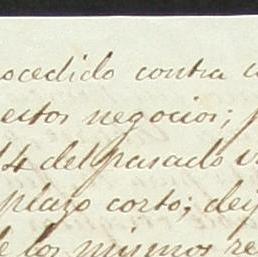 ocedido contra
estos negocios;
14 del pasado
plazo corto;
los mismos